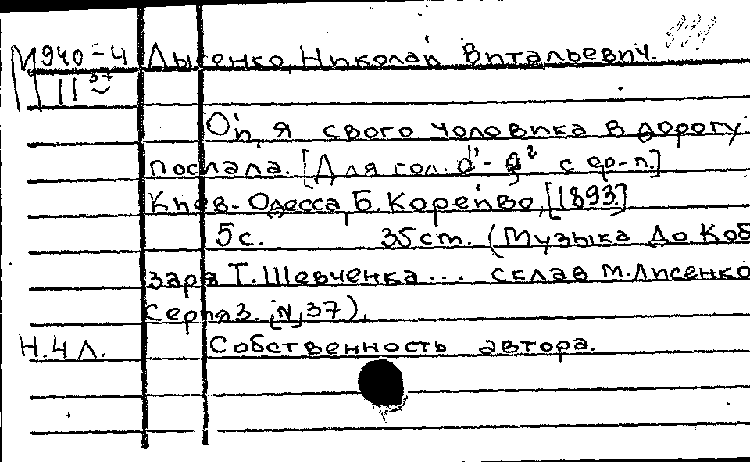 М 940-4 Лысенко, Николай Витальевич.
III 37
Ой, я свого чоловика в дорогу
послала. [Для гол. d¹- g² с фр-п.]
Киев-Одесса, Б. Корейво, [1893]
5с. 35ст. (Музыка До Коб
заря Т. Шевченка... склав М. Лисенко
Серия 3. [№] 37).
Н.ЧЛ. Собственность автора.